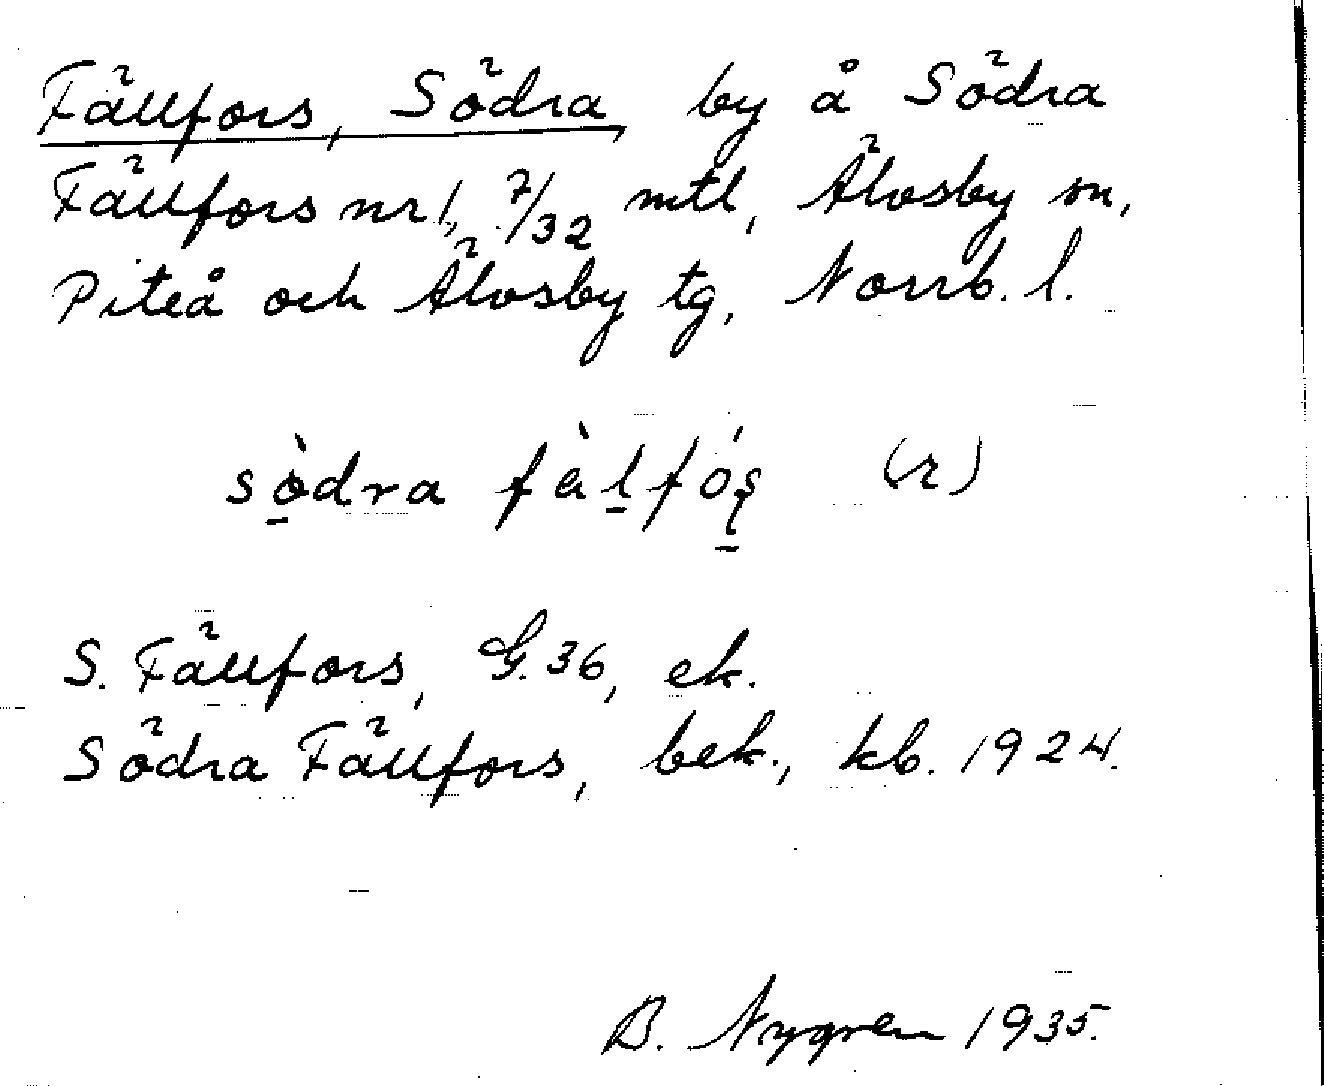 Fällfors, Södra, by å Södra
Fällfors nr 1, 7/32 mtl, Älvsby sn,
Piteå och Älvsby tg, Norrb. l.
sö̀dra fä̀lfós (r)
S. Fällfors, G. 36, ek.
Södra Fällfors, bek., kb. 1924.
B. Nygren 1935.